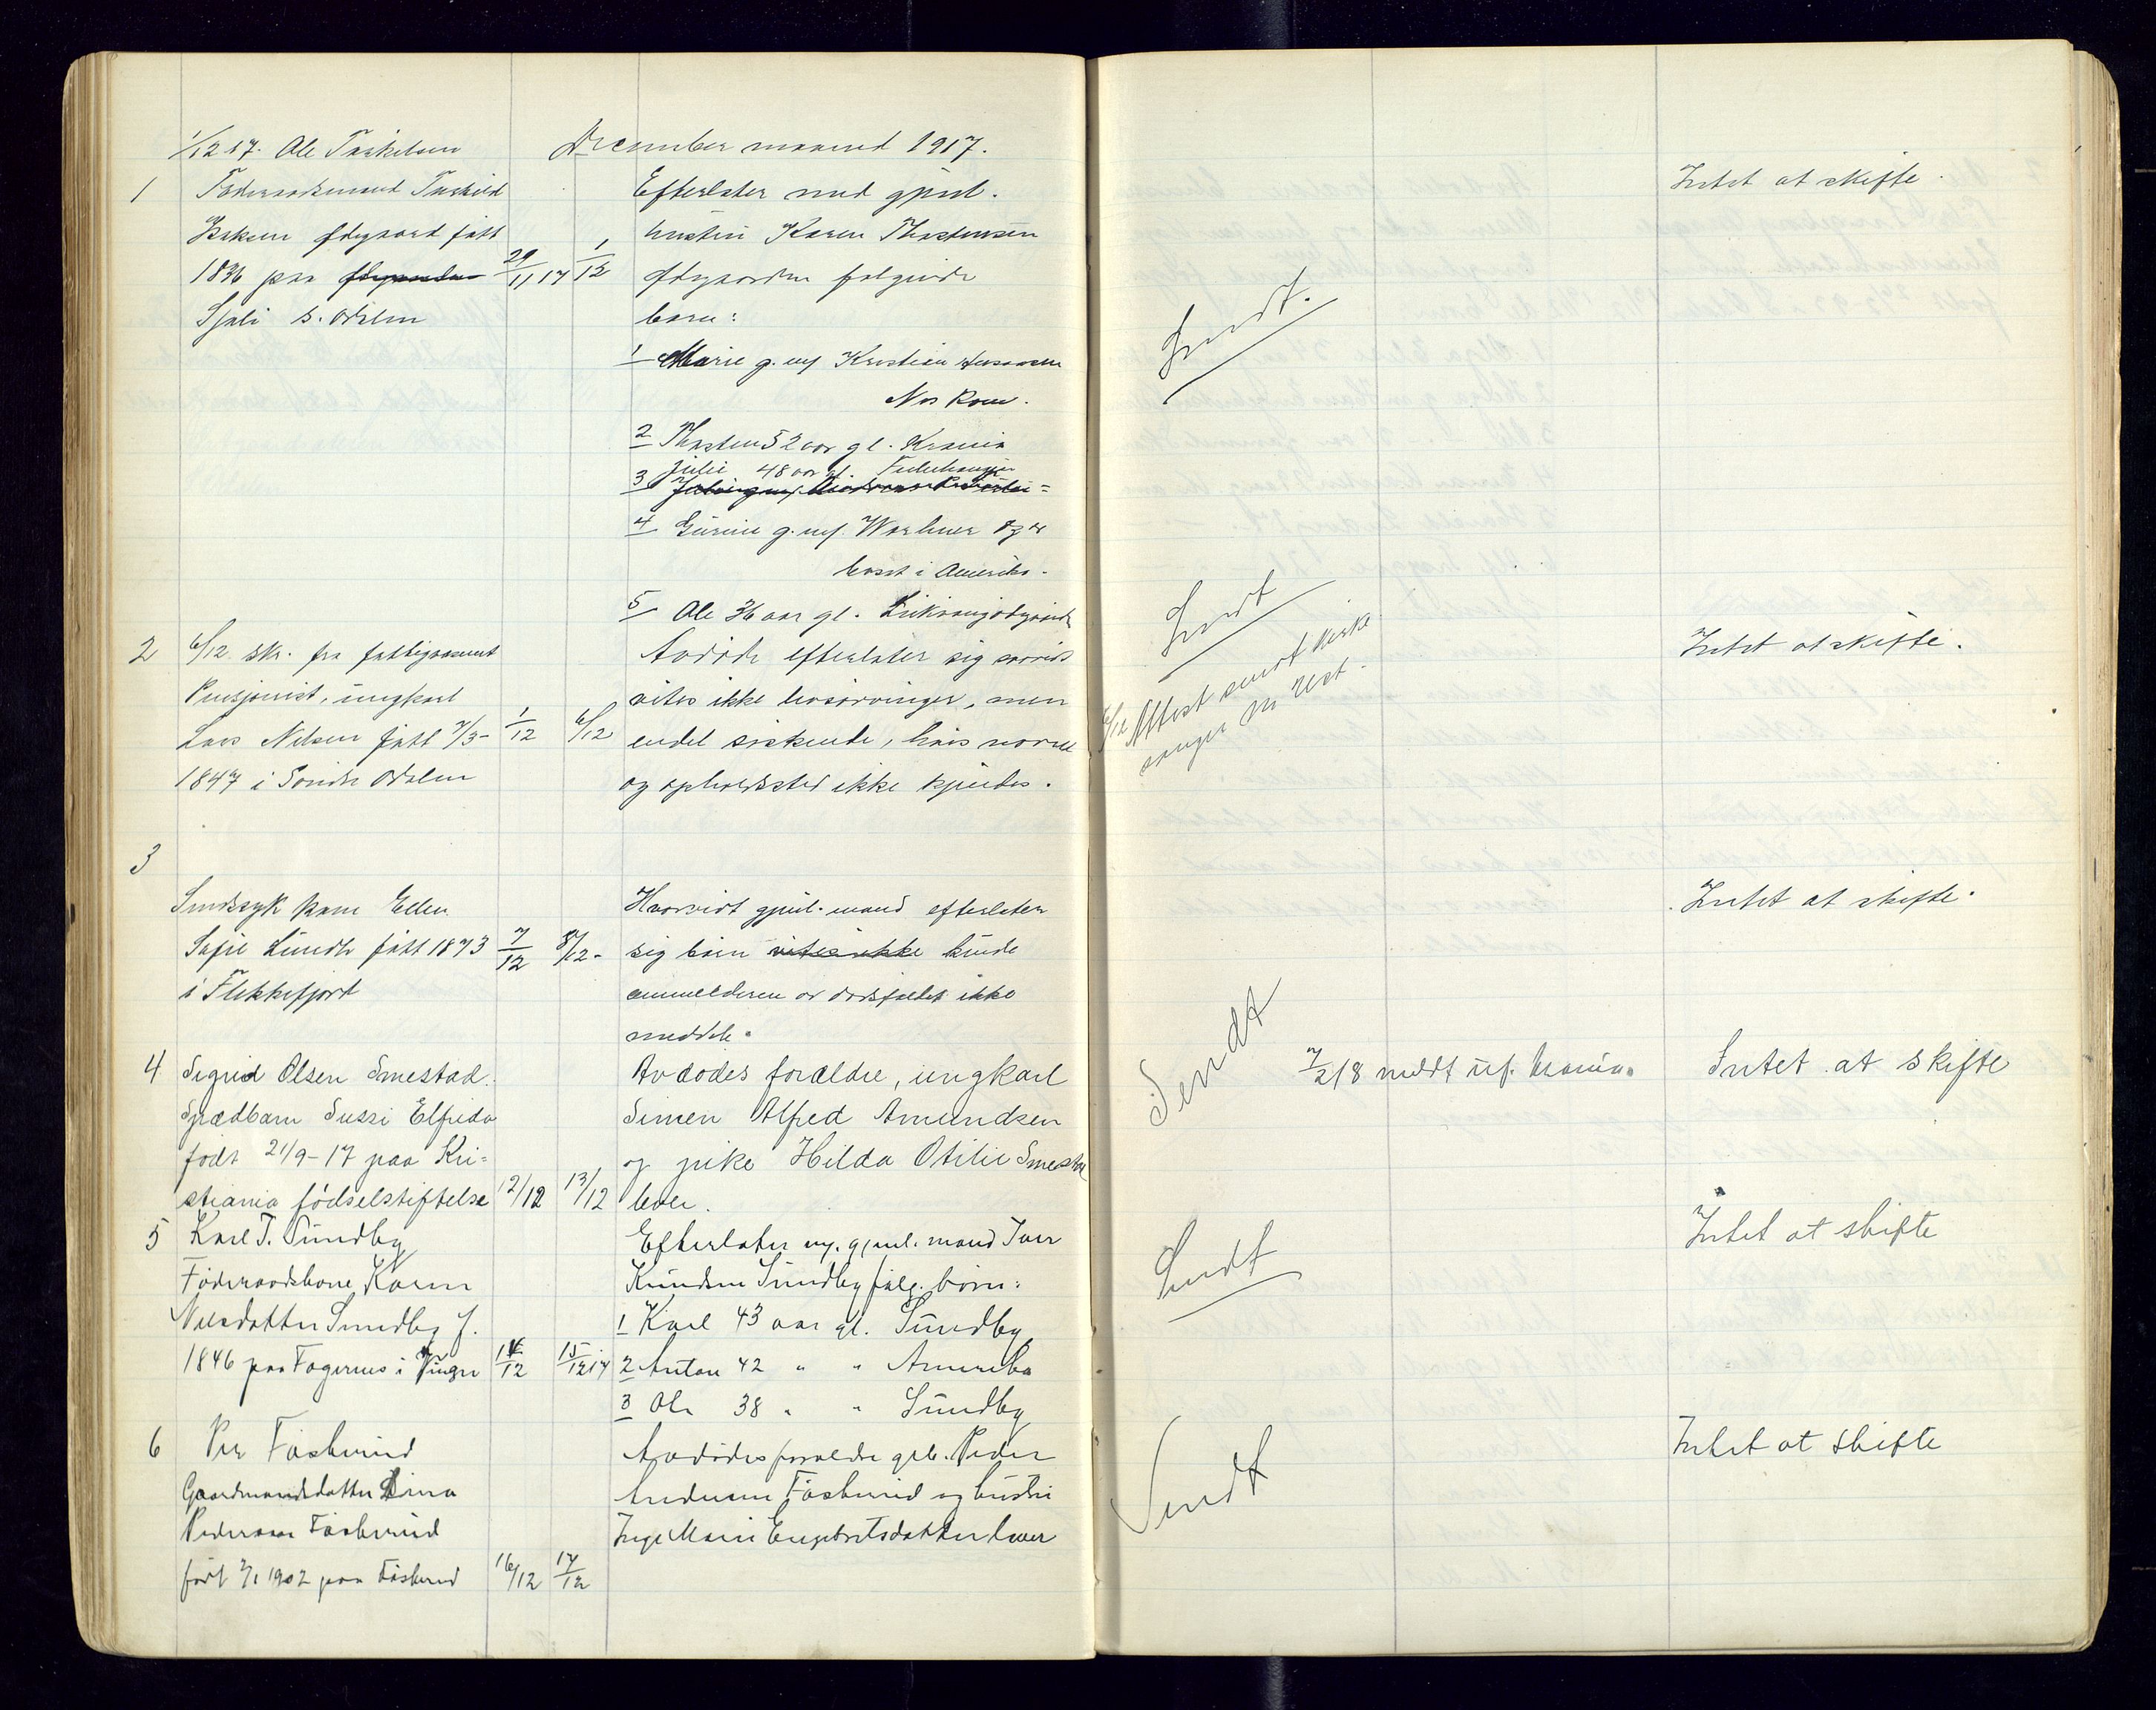 December maaned 1917.
1/12 17. Ole Taskilsen
1 Føderaadsmand Taskild Efterlater med gjenl. Intet at skifte.
Isaksen Ødegaard født hustru Karen Thostensen
1836 paa 29/11 17 1/12 Ødegaarden følgende Sendt.
S. Odalen barn:
1 Marie g. m/ Kristian
Nos kom.
2 Thosten 52 aar gl. Krania
3 Julie 48 aar gl.
4 Gurine g. m/.
bosat i Amerika.
5 Ole 36 aar gl.
2 6/12 skr. fra fattigvæsenet Avdøde efterlater sig Sendt Intet at skifte.
Pensjonist, ungkarl vites ikke livsarvinger, men
Lars Nilsen født 7/3- 1/12 6/12 endel søskende, hvis navne 6/12 Attest sendt kirke
1847 i Søndre Odalen og opholdssted ikke kjendes. sanger
3
Sindssyk kone Ellen Hvorvidt gjenl. mand efterlater Intet at skifte.
Sofie Lunde født 1873 7/12 8/12- sig barn vites ikke kunde
i Flekkefjord anmelderen av dødsfaldet ikke
meddele.
4 Sigrid Olsen Smestad. Avdødes forældre, ungkarl Sendt 7/2 18 meldt Intet at skifte
Spædbarn Sussi Elfrida Simen Alfred Amundsen
født 21/9-17 paa Kri= og pike Hilda Otilie Smestad
stiania fødselstiftelse 12/12 13/12 lever.
5 Karl I. Sundby Efterlater m. gjenl. mand Iver Sendt Intet at skifte
Føderaadskone Karen Knudsen Sundby følg. børn:
Nilsdatter Sundby f. 1 Karl 43 aar gl. Sundby
1846 paa Fagernes i Vinger 14/12 15/12 17 2 Anton 42 " " Amerika
3 Ole 38 " " Sundby
6 Per Fosberud Avdødes forældre grb. Peder Sendt Intet at skifte
Gaardmandsdatter Dina Andersen Fosberud og hustru
Pedersen Fosberud Inge Marie Engebretsdatter lever
født 7/1 1902 paa Fosberud 16/12 17/12